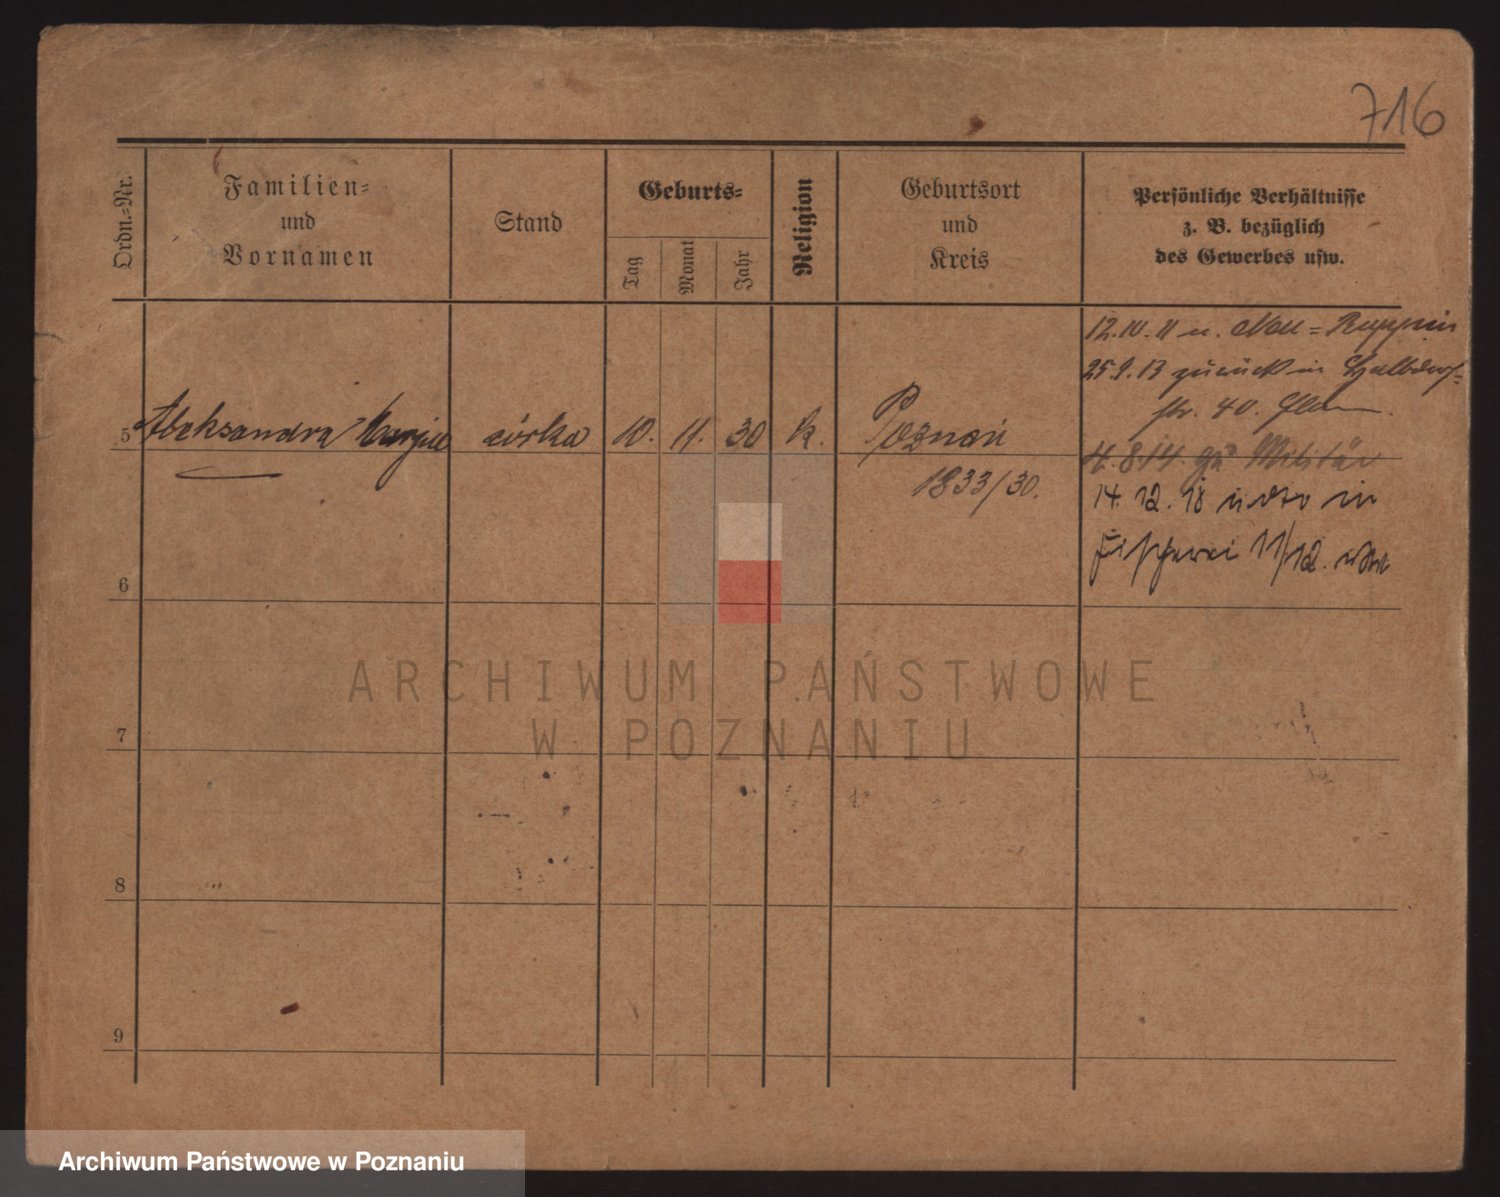 716
Ordn.-Nr.
Familien-
und
Vornamen
Stand
Geburts-
Tag
Monat
Jahr
Religion
Geburtsort
und
Kreis
Persönliche Verhältnisse
z. B. bezüglich
des Gewerbes usw.
12.10.11 n. Neu-Ruppin
25.9.13 zurück in Halbdorf-
str. 40.
5 Aleksandra córka 10. 11. 30 k. Poznań
4.8.14. zu Militär
1833/30.
14. 12. 18 in
Fischerei 11/12.
6
7
8
9
ARCHIWUM PAŃSTWOWE
W POZNANIU
Archiwum Państwowe w Poznaniu